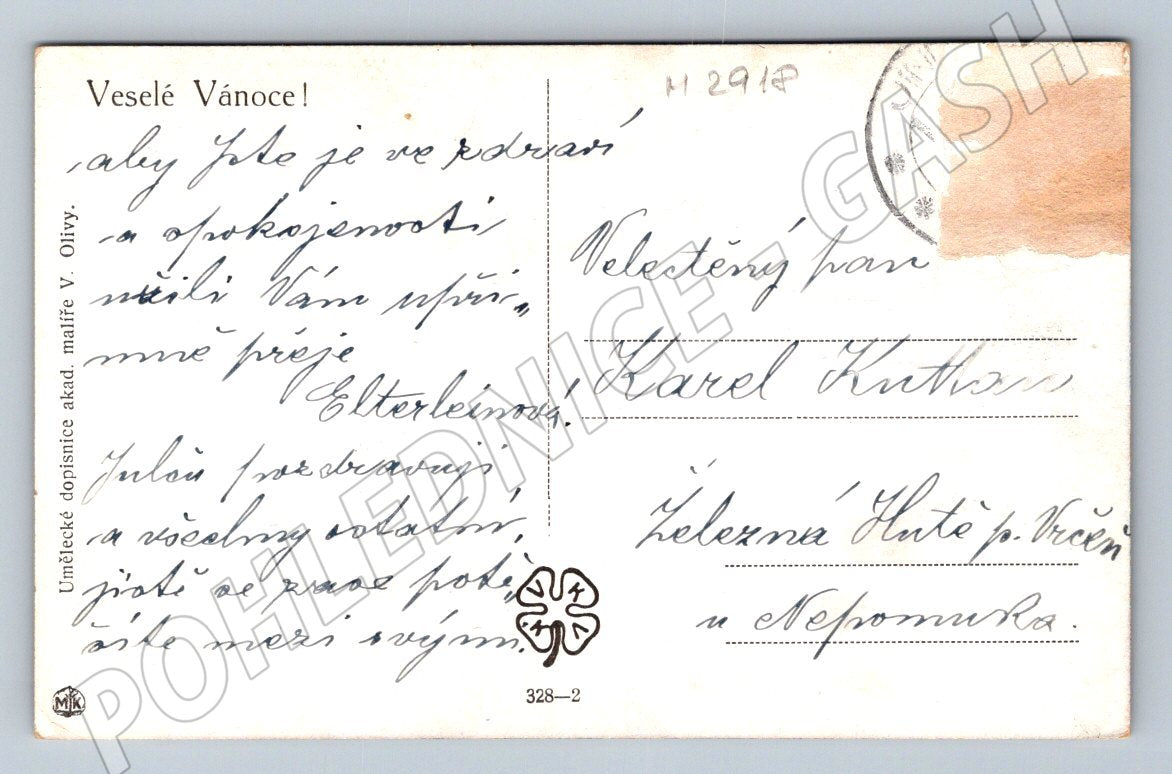 Veselé Vánoce!
aby Jste je ve zdraví
a spokojenosti
užili Vám upří„
mně přeje
Elterleinová.
Julču pozdravuji
a všechny ostatní,
jistě se zase potě„
šíte mezi svými.
Umělecké dopisnice akad. malíře V. Olivy.
M 2918
Velectěný pan
Karel
Železná Hutě p. Vrčeň
u Nepomuka.
V K K V
328—2
MK
POHLEDNICE - GASH